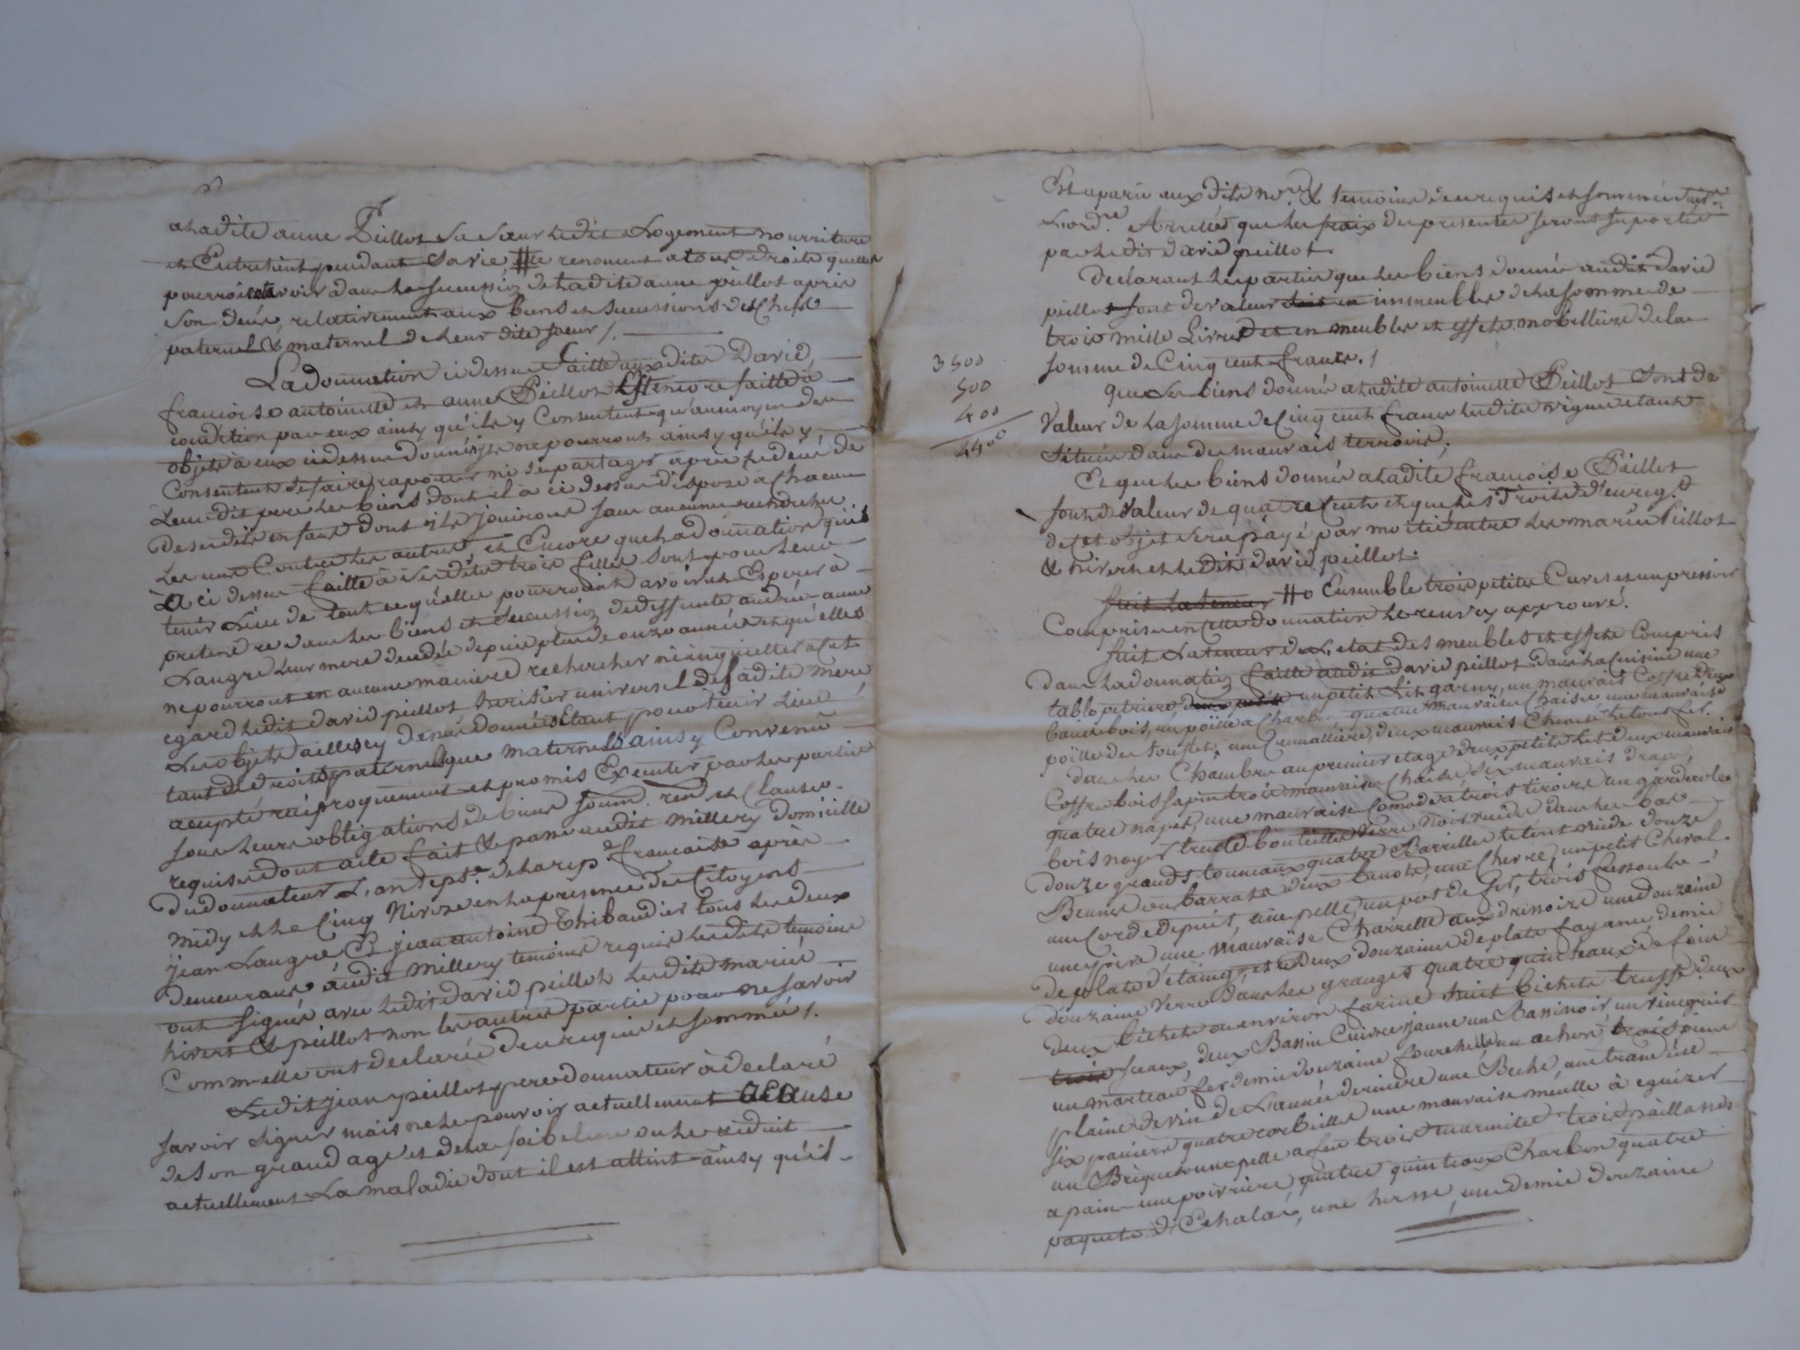 a ladite anne Peillot sa sœur ledit Logement nourriture
et Entretient pendant sa vie # renoncent a tous droits quelle
pourroit avoir dans la succession de ladite anne peillot après
son decé, relativement aux biens et successions de Chefs
paternel & maternel de leur dite soeur /.
La donnation ci dessus faitte auxdits David,
francoise antoinette et anne Peillot Est encore faitte à
condition par eux ainsy qu'ils y Consentent qu'au moyen des
objets à eux ci dessus donnés ils ne pourront ainsy qu'ils y
Consentent se faire raporter ni se partager après le decé de
Leur dit pere les biens dont il à ci dessus disposé à chacun
De sesdits enfans dont ils jouiront sans aucunes recherches
Les uns Contre les autres et Encore que la donnation qu'il
A ci dessus faitte à sesdites trois filles sont pour leur
tenir Lieu de tout ce qu'elles pourroient avoir et Esperer à
pretendre dans les biens et succession de deffunte anne
Langre leur mere decedée depuis plus de onze années et qu'elles
ne pourront en aucune maniere rechercher ni inquietter à cet
egard ledit david peillot heritier universel de sadite mere
Les objets a elles cy devant donnés Etant pour tenir Lieu
tant de droits paternels que maternels ainsy Convenu
accepté réciproquement et promis Executer par les parties
sous leurs obligations de biens soum. ren. et Clauses
requises dont acte fait & passé audit millery Domicille
du donnateur L'an sept. de la rep.e francaise après
midy et le Cinq Nivose en la presence des Citoyens
jean Langre Et jean antoine Thibaudier tous les deux
demeurant audit millery temoins requis lesdits temoins
ont signés avec ledit david peillot lesdits mariés
hivert & peillot non les autres parties pour ne savoir
Comm elles ont declarés de ce requis et sommés /.
Ledit jean peillot pere donnateur à declaré
savoir signer mais ne le pouvoir actuellement acause
de son grand age et de la foiblesse ou le reduit
actuellement La maladie dont il est attint ainsy qu'il
Est aparu aux dits no.res & temoins de ce requis et sommés
L'ord.re Arrêté que les frais du presentes seront suportés
par ledit david peillot
Declarant les parties que les biens donnés audit david
peillot sont de valeur en immeubles de la somme de
trois mille Livres et en meubles et effets mobilliers de la
somme de Cinq cent francs. /
3500
500
400
4400
que Les biens donnés a ladite antoinette Peillot Sont de
Valeur de la somme de Cinq cent francs ladite vigne etant
située dans de mauvais terroir,
Et que les biens donnés a ladite francoise Peillot
sont de valeur de quatre Cents et que les droits d'enreg.t
de cet objet sera payé par moitié entre les mariés Peillot
& hivert et ledit david peillot.
suit la teneur # o Ensemble trois petites Cuves et un pressoir
Comprises en Cette donnation le renvoy approuvé.
suit La teneur de L'etat des meubles et effets Compris
dans la donnation faitte audit David peillot dans la Cuisine une
table petriere, un petit Lit garny, un mauvais Coffre deux
bancs bois, un poille a Charbon quatre mauvaises Chaises une mauvaise
poille de, un soufflet, une Cremalliere, deux mauvais Chenets le tout fer.
dans les Chambre au premier etage deux petits Lit deux mauvais
Coffre bois sapin trois mauvaises Chaises six mauvais draps,
quatre napes, une mauvaise Comode a trois tiroirs un garderobe
bois noyer trente bouteilles Verre Noir vuide dans les bas
douze grands tonneaux quatre Barrilles le tout vuide douze
Bennes ou barrats deux banots, une Chevre, un petit Cheval
une Corde de puit, une pelle, un pot de fer, trois fessoules
une soire une mauvaise Charrette aux dressoirs une douzaine
de plats d'étaing et deux douzaine de plats fayance demie
douzaine verre Dans les granges quatre quinteaux de foin
deux bichets ou environ farine huit bichets truffe deux
trois seaux, deux Bassins Cuivre jaune un Bassinoir un vinegrier
un marteau fer demie douzaine fourchettes un achon trois pieces
plaine de vin de L'année derniere une Beche, une tranche
six paniers quatre corbeille une mauvaise meulle à eguizer
un Briquet une pelle a feu trois marmittes trois paillasses
a pain une poivriere quatre quinteaux Charbon quatre
paquets d'Echalas, une herse, une demie douzaine